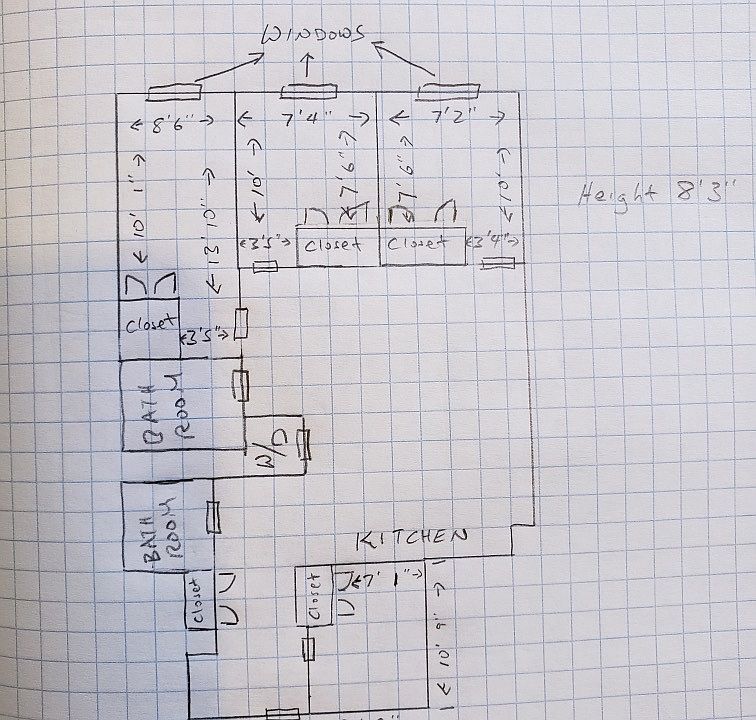 WINDOWS
8'6"
7'4"
7'2"
10' 1"
13' 10"
10'
7'6"
7'6"
10'
Height 8'3"
3'5"
Closet
Closet
3'4"
Closet
3'5"
BATH
ROOM
W/D
BATH
ROOM
KITCHEN
Closet
Closet
7' 1"
10' 9"